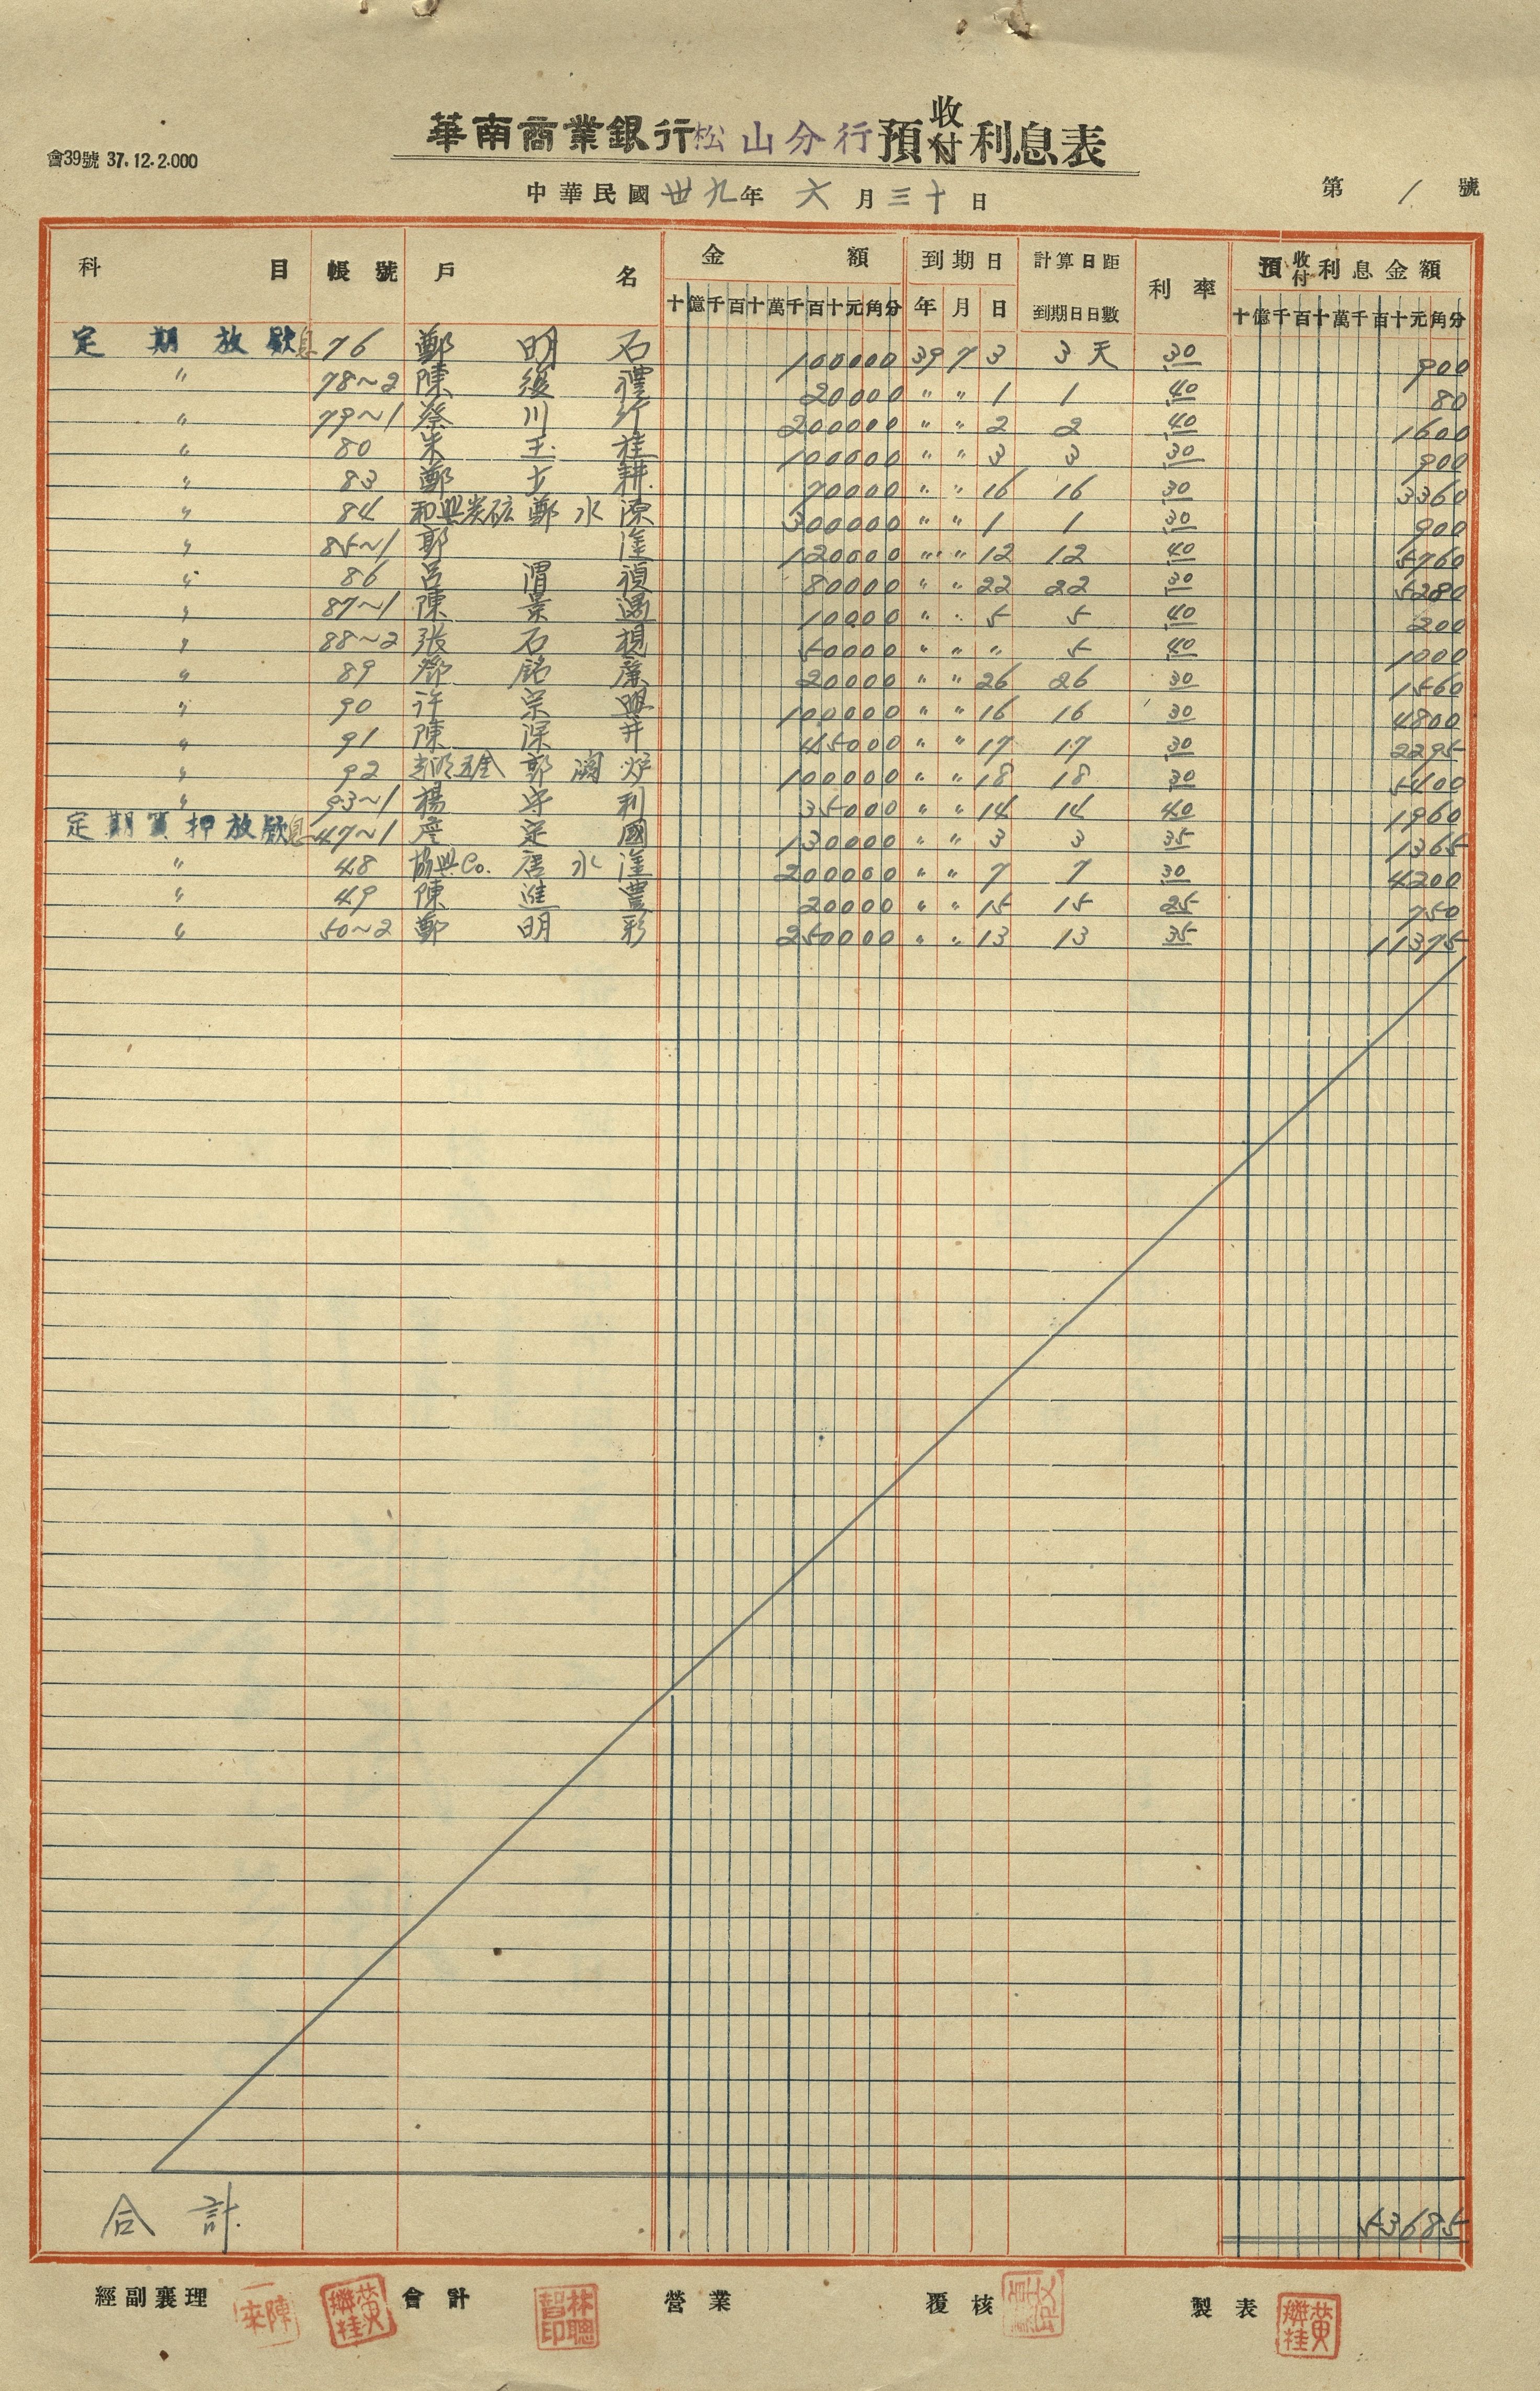 華南商業銀行松山分行預收付利息表
會39號 37.12.2.000
中華民國 卅九年 六月三十日 第 1 號
科目 帳號 戶名 金額 到期日 計算日距到期日日數 利率 預收付利息金額
十億千百十萬千百十元角分 年 月 日 十億千百十萬千百十元角分
定期放款息 76 鄭明石 100000 39 7 3 3天 30 900
〃 78~2 陳後禮 20000 〃 〃 1 1 40 80
〃 79~1 蔡川竹 200000 〃 〃 2 2 40 1600
〃 80 朱玉桂 100000 〃 〃 3 3 30 900
〃 83 鄭士耕 70000 〃 〃 16 16 30 3360
〃 84 和興炭砿 鄭水源 300000 〃 〃 1 1 30 900
〃 85~1 鄭 120000 〃 〃 12 12 40 5760
〃 86 呂渭禎 80000 〃 〃 22 22 30 5280
〃 87~1 陳景 10000 〃 〃 5 5 40 200
〃 88~2 張石 50000 〃 〃 〃 5 40 1000
〃 89 鄧銘 20000 〃 〃 26 26 30 1560
〃 90 許宗興 100000 〃 〃 16 16 30 4800
〃 91 陳深井 45000 〃 〃 17 17 30 2295
〃 92 五金 郭 炉 100000 〃 〃 18 18 30 5400
〃 93~1 楊守利 35000 〃 〃 14 14 40 1960
定期質押放款息 47~1 詹定國 130000 〃 〃 3 3 35 1365
〃 48 協興Co. 唐水 200000 〃 〃 7 7 30 4200
〃 49 陳進豐 20000 〃 〃 15 15 25 750
〃 50~2 鄭明彩 250000 〃 〃 13 13 35 11375
合計 53685
經副襄理 陳一來 黃燐桂 會計 林聰智印 營業 覆核 製表 黃燐桂